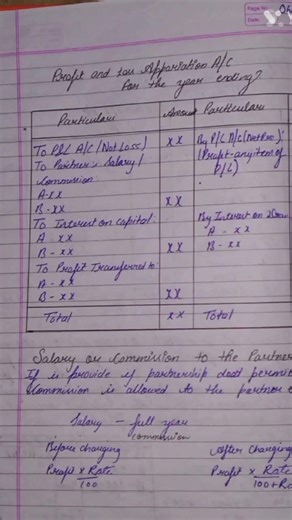 Page No.
Date
Profit and loss Appporiation A/C
for the year ending?
Particulars Amount Particulars
To P&L A/C (Net Loss) xx By P/L A/C (Net Pro.):
To Partner's Salary/ (Profit - any item of
Commission P/L)
A - xx
B - xx xx
To Interest on Capital: By Interest on
A - xx A - xx
B - xx xx B - xx
To Profit Transferred to:
A - xx
B - xx xx
Total xx Total
Salary or Commission to the Partner
If is provide if partnership deed permi
Commission is allowed to the partner
Salary - full year
commission
Before charging After Charging
Profit x Rate Profit x Rate
100 100+Ra